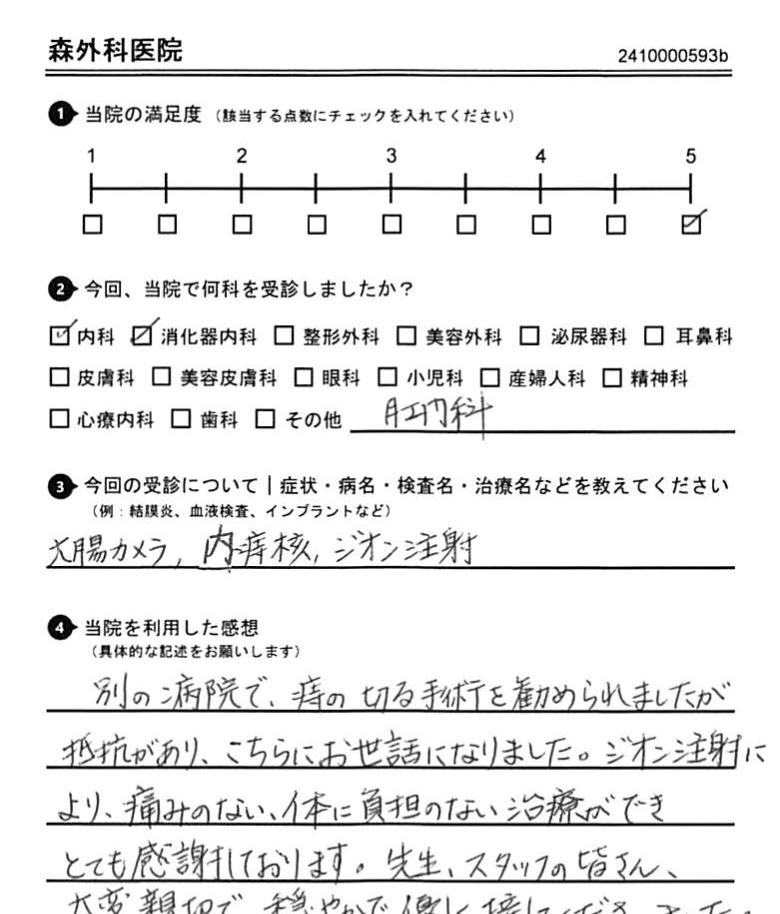 森外科医院
2410000593b
1 当院の満足度 (該当する点数にチェックを入れてください)
1 2 3 4 5
2 今回、当院で何科を受診しましたか?
内科 消化器内科 整形外科 美容外科 泌尿器科 耳鼻科
皮膚科 美容皮膚科 眼科 小児科 産婦人科 精神科
心療内科 歯科 その他 肛門科
3 今回の受診について|症状・病名・検査名・治療名などを教えてください
(例:結膜炎、血液検査、インプラントなど)
大腸カメラ, 内痔核, ジオン注射
4 当院を利用した感想
(具体的な記述をお願いします)
別の病院で、痔の切る手術を勧められましたが
抵抗があり、こちらにお世話になりました。ジオン注射に
より、痛みのない、体に負担のない治療ができ
とても感謝しております。先生、スタッフの皆さん、
大変親切で、穏やかで優しく接してくださいました。